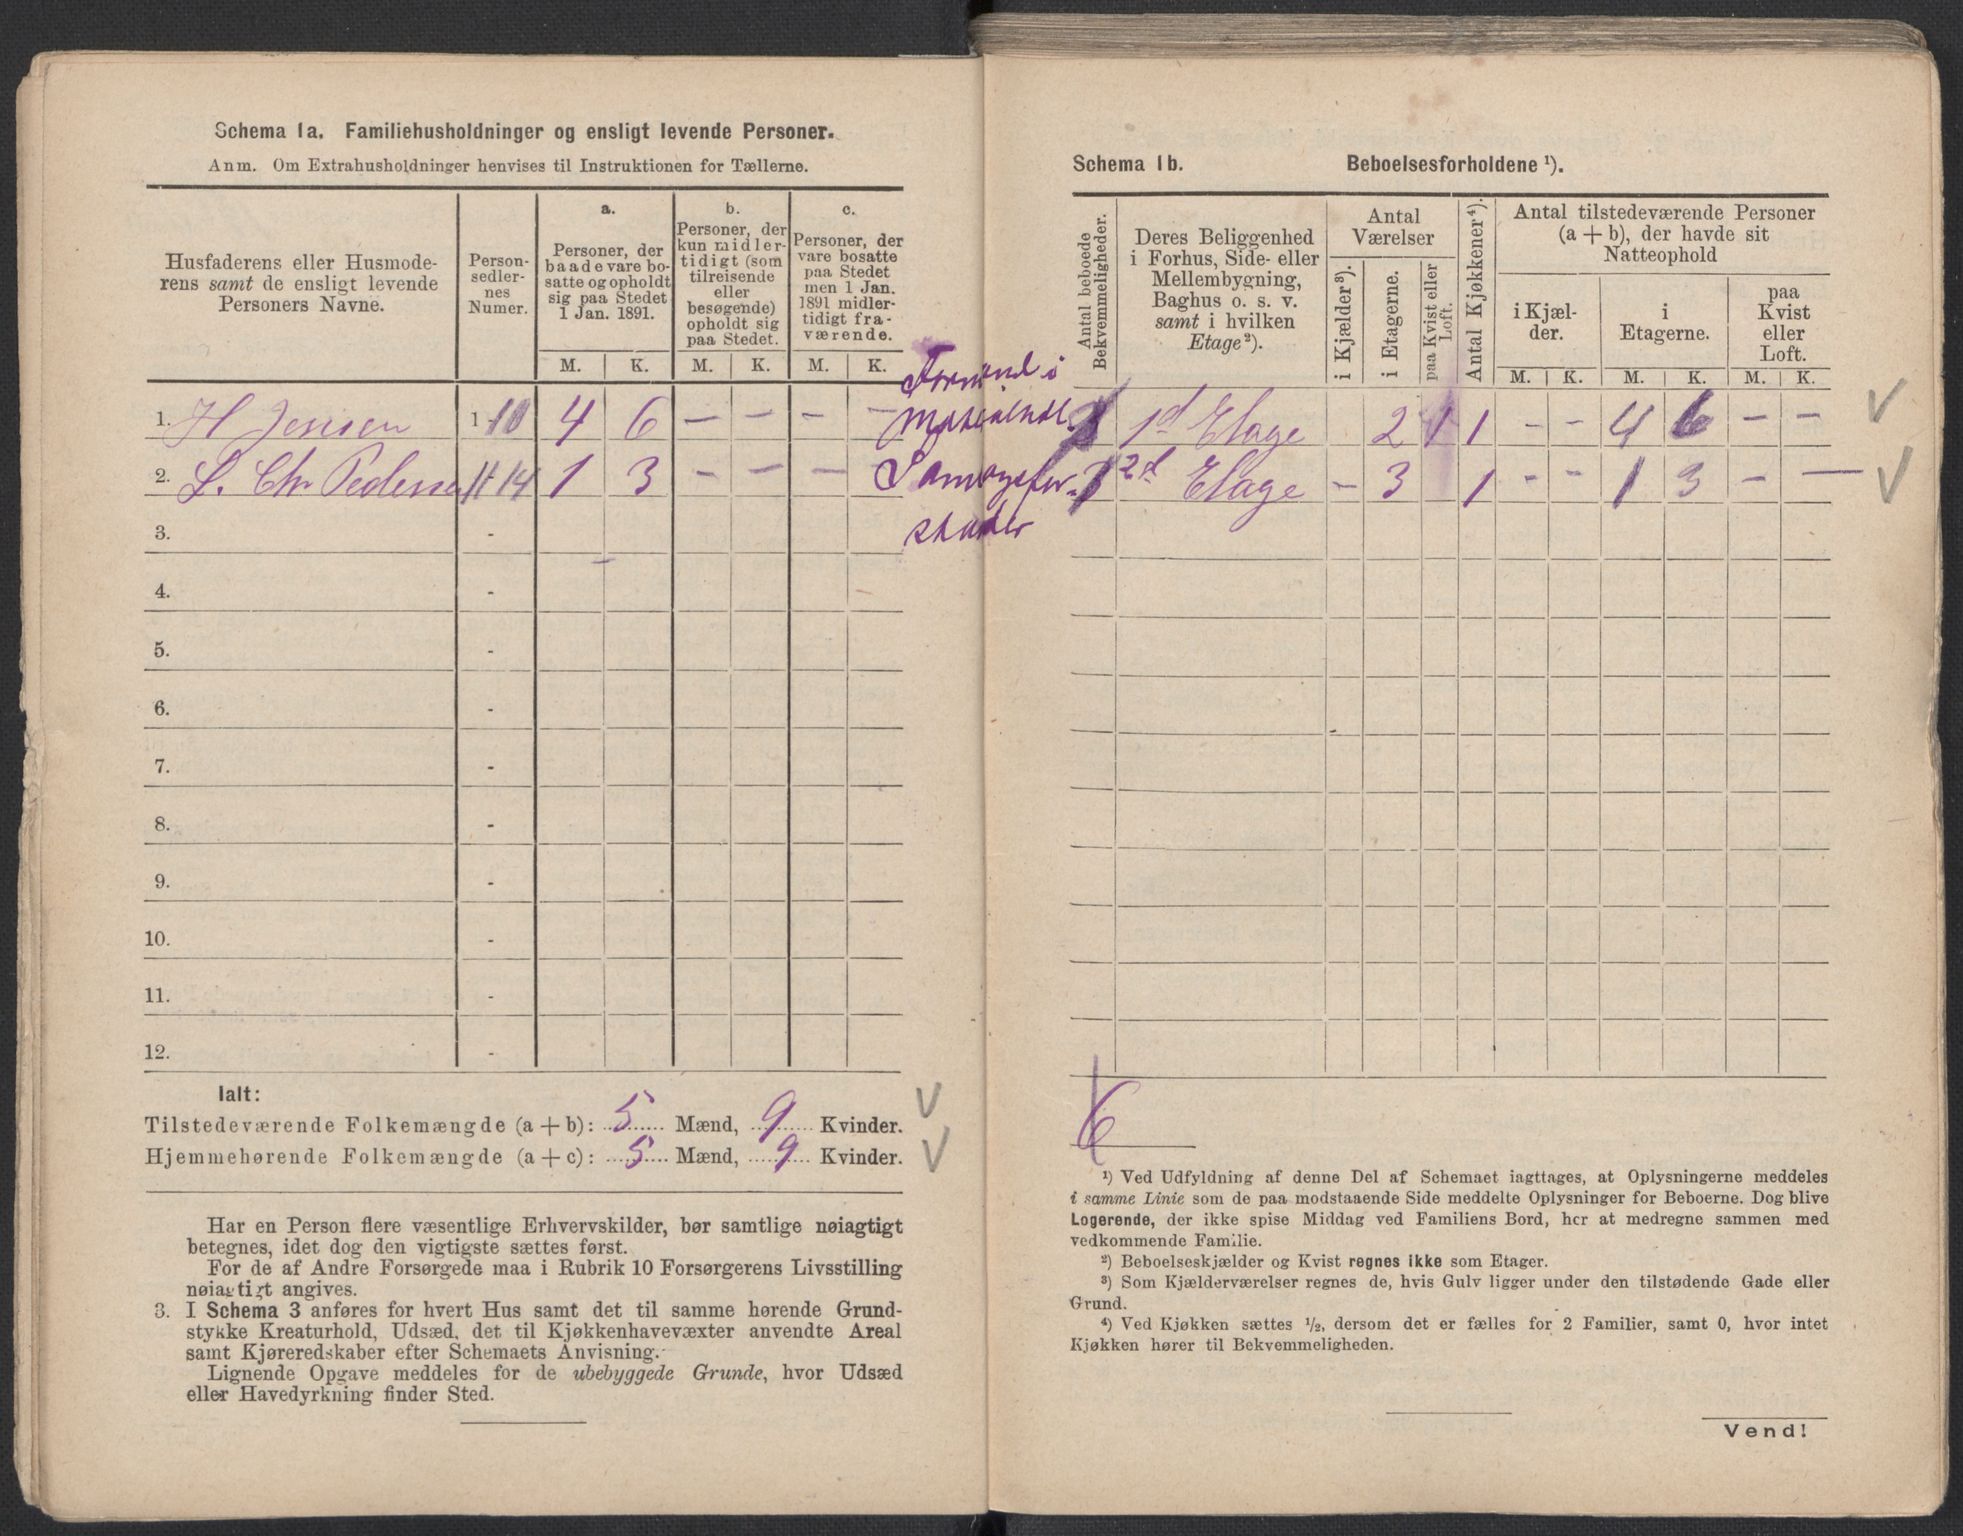 Schema 1a. Familiehusholdninger og ensligt levende Personer.
Anm. Om Extrahusholdninger henvises til Instruktionen for Tællerne.
Husfaderens eller Husmode-
rens samt de ensligt levende
Personers Navne.
Person-
sedler-
nes
Numer.
a.
Personer, der
baade vare bo-
satte og opholdt
sig paa Stedet
1 Jan. 1891.
b.
Personer, der
kun midler-
tidigt (som
tilreisende
eller
besøgende)
opholdt sig
paa Stedet.
c.
Personer, der
vare bosatte
paa Stedet
men 1 Jan.
1891 midler-
tidigt fra-
værende.
M. K. M. K. M. K.
1. H Jensen 1-10 4 6 - - - -
Formand i
2. L. Chr Pedersen 11-14 1 3 - - -
3. -
4. -
5. -
6. -
7. -
8. -
9. -
10. -
11. -
12. -
Ialt:
Tilstedeværende Folkemængde (a + b): 5 Mænd, 9 Kvinder.
Hjemmehørende Folkemængde (a + c): 5 Mænd, 9 Kvinder.
Har en Person flere væsentlige Erhvervskilder, bør samtlige nøiagtigt
betegnes, idet dog den vigtigste sættes først.
For de af Andre Forsørgede maa i Rubrik 10 Forsørgerens Livsstilling
nøiagtigt angives.
3. I Schema 3 anføres for hvert Hus samt det til samme hørende Grund-
stykke Kreaturhold, Udsæd, det til Kjøkkenhavevæxter anvendte Areal
samt Kjøreredskaber efter Schemaets Anvisning.
Lignende Opgave meddeles for de ubebyggede Grunde, hvor Udsæd
eller Havedyrkning finder Sted.
Schema 1b. Beboelsesforholdene ¹).
Antal beboede
Bekvemmeligheder.
Deres Beliggenhed
i Forhus, Side- eller
Mellembygning,
Baghus o. s. v.
samt i hvilken
Etage²).
Antal
Værelser
i Kjælder³).
i Etagerne.
paa Kvist eller
Loft.
Antal Kjøkkener⁴).
Antal tilstedeværende Personer
(a + b), der havde sit
Natteophold
i Kjæl-
der.
i
Etagerne.
paa
Kvist
eller
Loft.
M. K. M. K. M. K.
1 1d Etage 2 1 1 - - 4 6 - -
1 2d Etage - 3 1 - - 1 3 - -
6
¹) Ved Udfyldning af denne Del af Schemaet iagttages, at Oplysningerne meddeles
i samme Linie som de paa modstaaende Side meddelte Oplysninger for Beboerne. Dog blive
Logerende, der ikke spise Middag ved Familiens Bord, her at medregne sammen med
vedkommende Familie.
²) Beboelseskjælder og Kvist regnes ikke som Etager.
³) Som Kjælderværelser regnes de, hvis Gulv ligger under den tilstødende Gade eller
Grund.
⁴) Ved Kjøkken sættes ½, dersom det er fælles for 2 Familier, samt 0, hvor intet
Kjøkken hører til Bekvemmeligheden.
Vend!